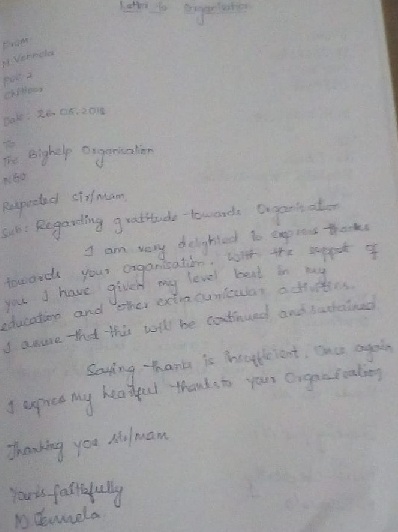 Letter to Organisation
From
M. Vennela
Date: 26.05.2018
To
The Bighelp Organisation
NGO
Respected sir/mam
Sub: Regarding gratitude towards Organisation
I am very delighted to express thanks
towards your organisation. With the support of
you I have given my level best in my
education and other extra curricular activities.
I assure that this will be continued and sustained
Saying thanks is Insufficient. Once again
I express my heartful thanks to your Organisation
Thanking you sir/mam
Yours faithfully
M. Vennela